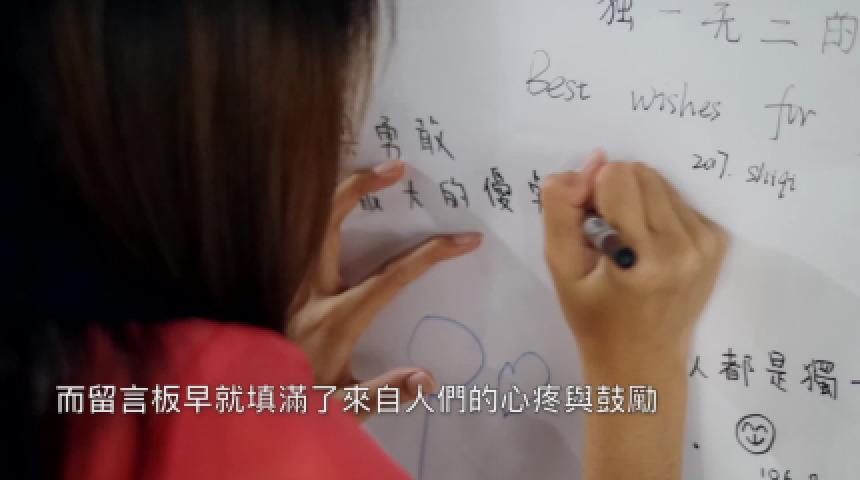 獨一无二的
Best wishes for
勇敢
207. shiqi
最大的優
人都是獨一
而留言板早就填滿了來自人們的心疼與鼓勵